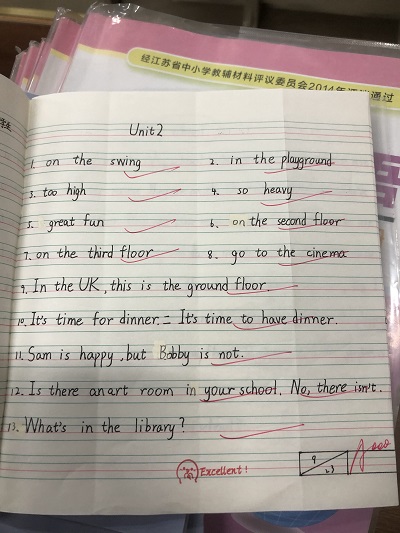 经江苏省中小学教辅材料评议委员会2014年评议通过
Unit2
1. on the swing 2. in the playground
3. too high 4. so heavy
5. great fun 6. on the second floor
7. on the third floor 8. go to the cinema
9. In the UK, this is the ground floor.
10. It's time for dinner. = It's time to have dinner.
11. Sam is happy, but Bobby is not.
12. Is there an art room in your school. No, there isn't.
13. What's in the library?
Excellent!
9
23